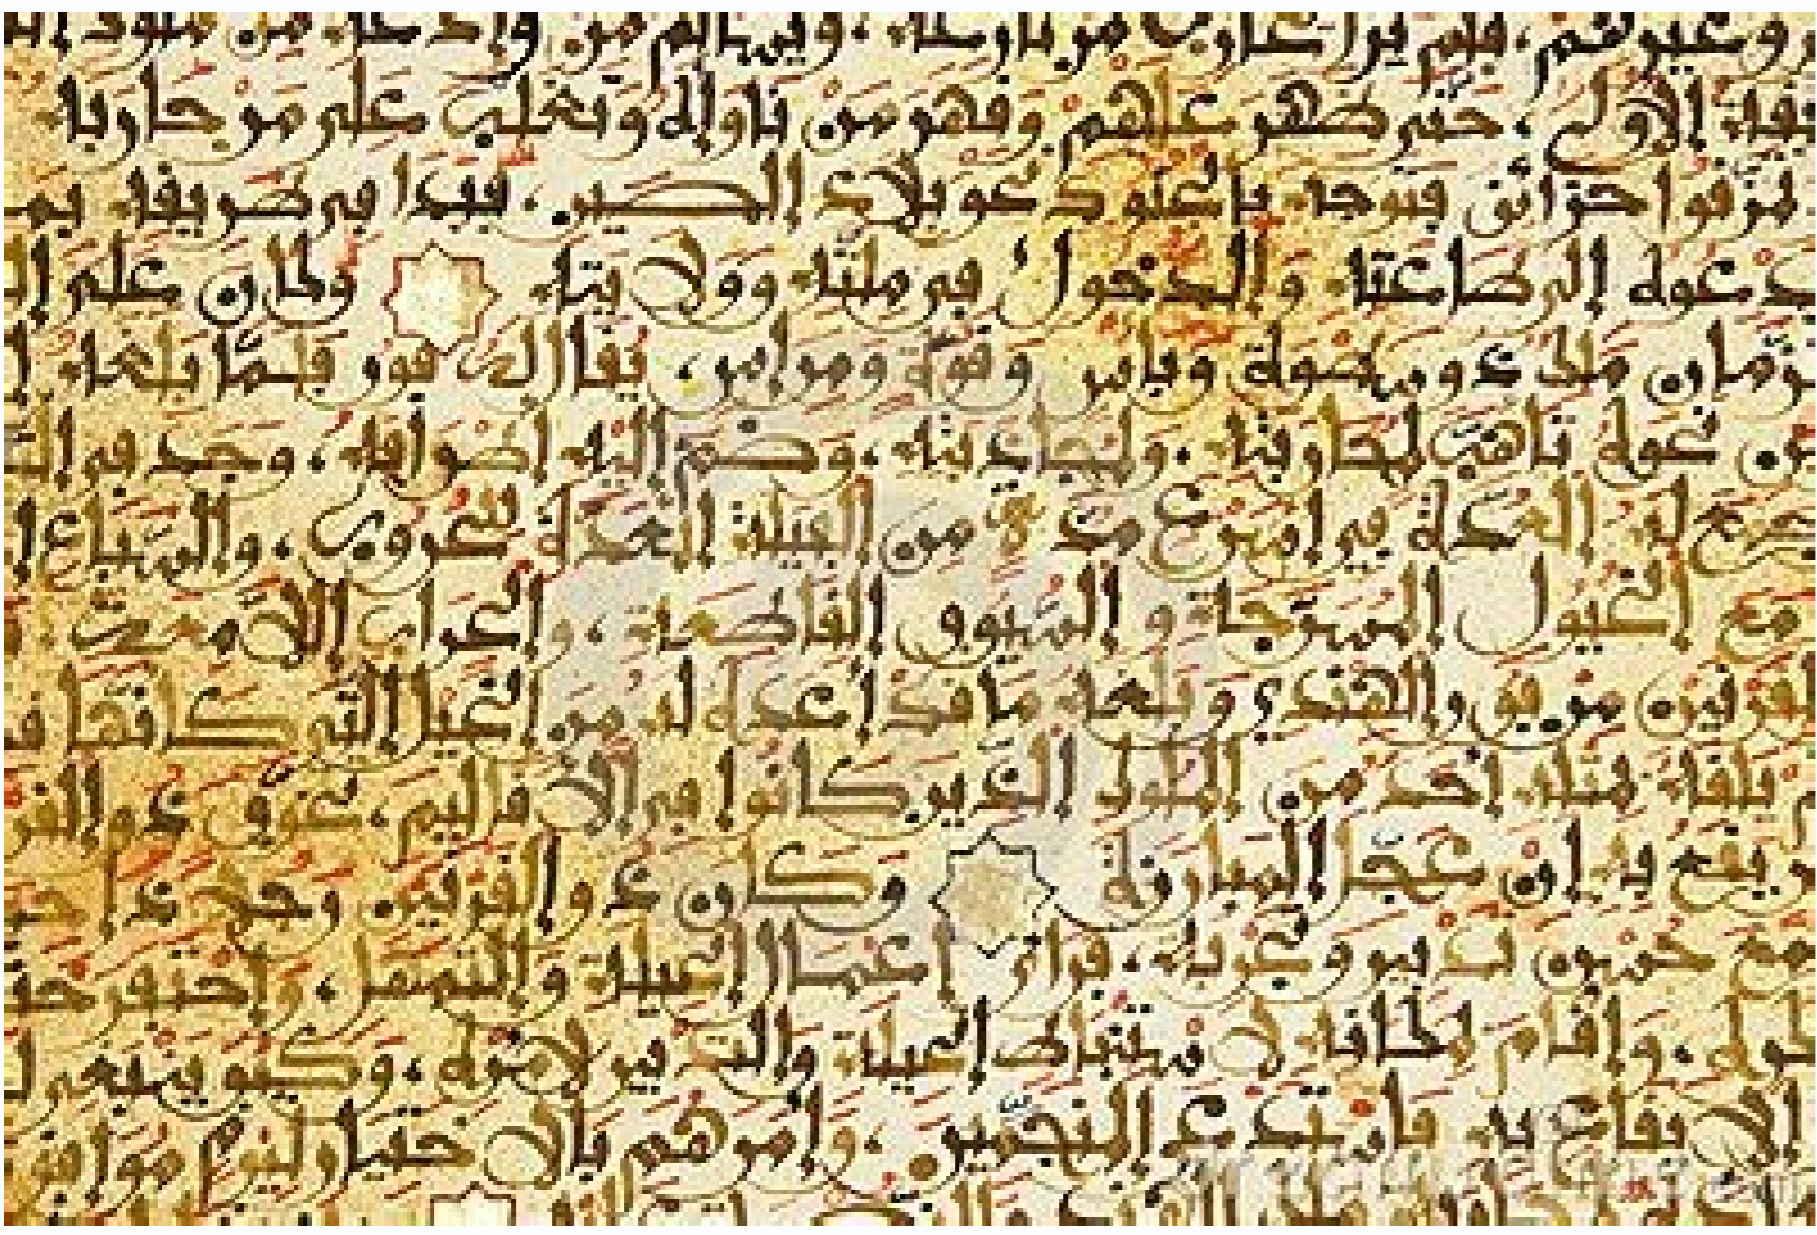 وغيرهم، فلم يزل يحارب من نازعه، ويسالم من وادعه من ملوك
الاولى، حتى ظهر عليهم وقهر من ناوأه وتغلب على من حاربه
تمزقوا خزائق فتوجه بالجنود نحو بلاد الصين، فبدا في طريقه
يدعوه إلى طاعته والدخول في ملته وولايته وكان على
زمان ملك ذو سطوة وباس وقوة ومراس، يقال له فور فلما بلغه
نحوه تاهب لمحاربته، ولمجاذبته، وضم إليه اطرافه، وجد في
جمع له العدة في اسرع مدة من الفيلة المعدة للحروب، والسباع
مع الخيول المسرجة والسيوف القاطعة، والحراب اللامعة،
القرنين من فور الهندي وبلغه ما قد أعد له من الخيل التي كانها
يلقاه بمثله احد من الملوك الذين كانوا في الاقاليم، تخوف ذو
يقع به إن عجل المبارزة وكان ذو القرنين رجل ذا
مع حسن تدبير وتجربة، فراى إعمال الحيلة والتمهل، واحتفر
وأقام بمكانه لاستنباط الحيلة والتدبير لامره، وكيف ينبغي
الايقاع به فاستدعى المنجمين، وامرهم بالاختيار ليوم موافق